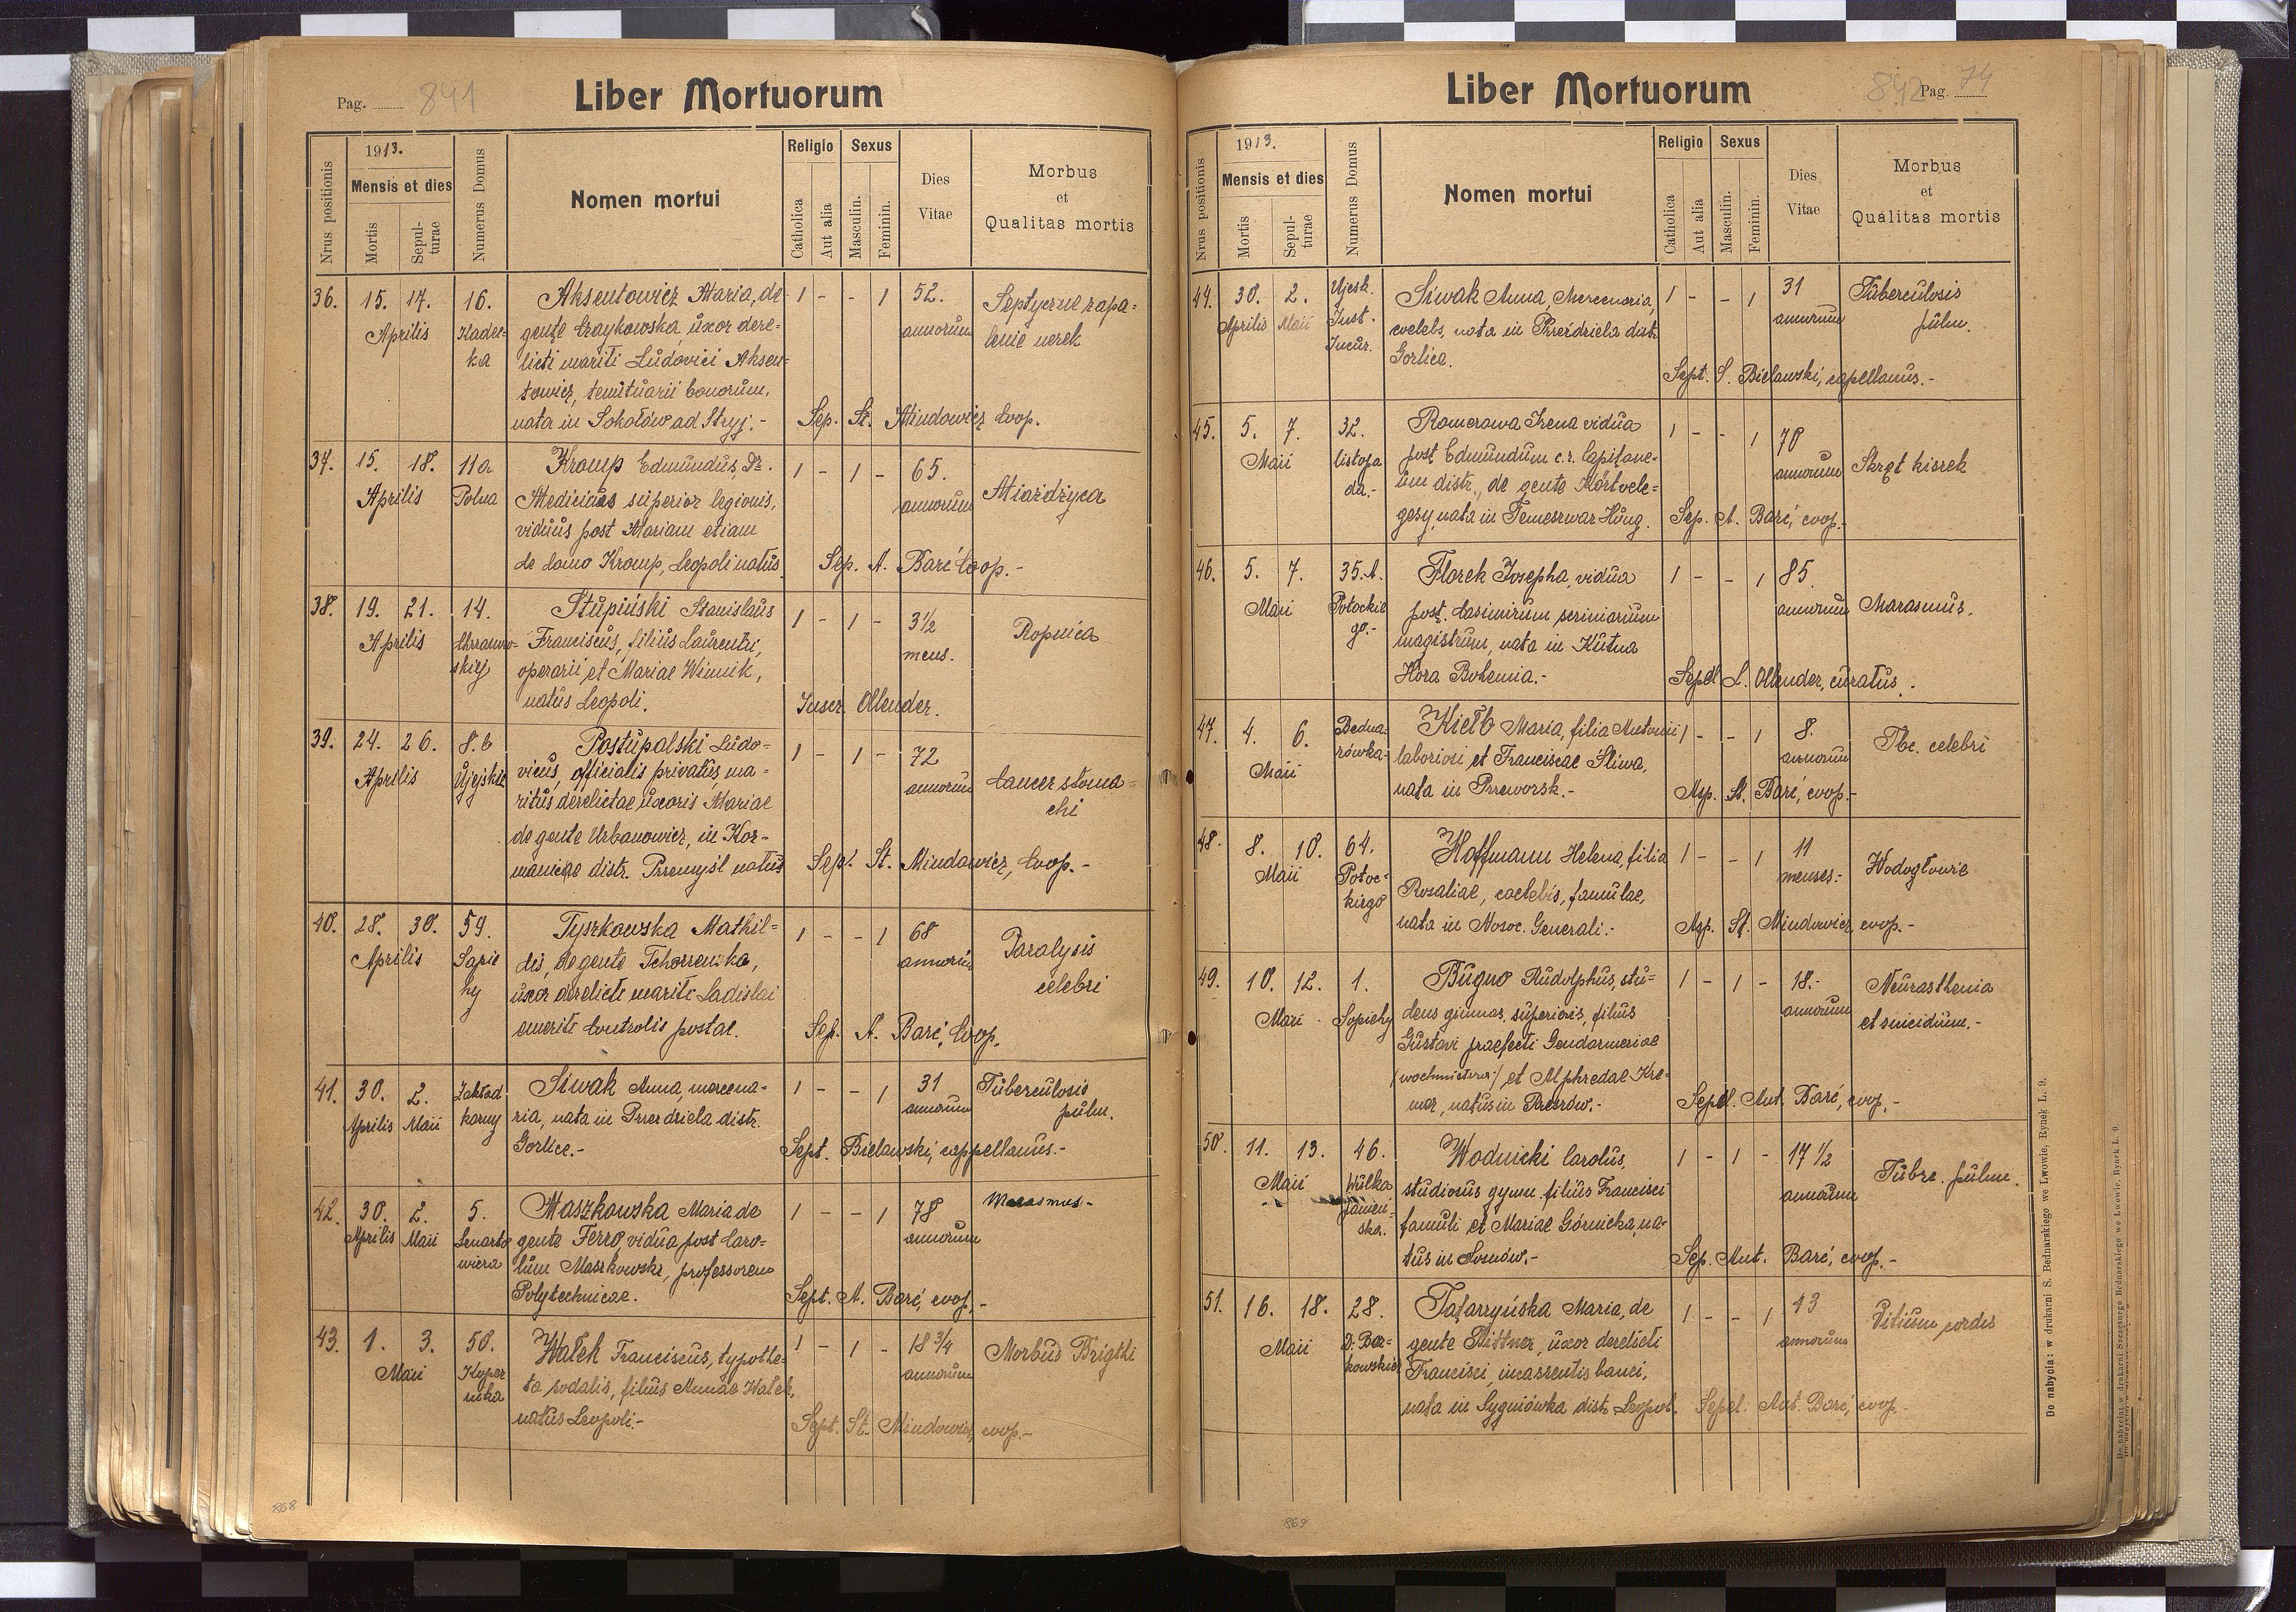 Pag. 841
Liber Mortuorum
1913.
Nrus positionis
Mensis et dies
Mortis
Sepulturae
Numerus Domus
Nomen mortui
Religio
Catholica
Aut alia
Sexus
Masculin.
Feminin.
Dies Vitae
Morbus et Qualitas mortis
36. 15. 17. 16. Aksentowicz Maria, de 1 - - 1 52. Septyczne zapa-
Aprilis Kadec- gente Czaykowska, uxor dere- annorum lenie nerek
ka licti mariti Ludovici Aksen-
towicz, tenutarii bonorum,
nata in Sokołów ad Stryj.- Sep. St. Mindowicz Coop.
37. 15. 18. 11a Kromp Edmundus, Dr. 1 - 1 - 65. Miażdżyca
Aprilis Polna Medicinas superior legionis, annorum
viduus post Mariam etiam
de domo Kromp, Leopoli natus Sep. A. Barć Coop.-
38. 19. 21. 14. Stupiński Stanislaus 1 - 1 - 3 1/2 Ropnica
Aprilis Chrzanow- Franciscus, filius Laurentii, mens.
skiej operarii et Mariae Winnik,
natus Leopoli. Inscr. Ollender.
39. 24. 26. 8.b Postupolski Ludo- 1 - 1 - 72 Cancer stoma-
Aprilis Ujejskie vicus, officialis privatus, ma- annorum chi
ritus derelictae uxoris Mariae
de gente Urbanowicz, in Kor-
manicae distr. Przemyśl natus Sept. St. Mindowicz, Coop.-
40. 28. 30. 59. Tyszkowska Mathil- 1 - - 1 68 Paralysis
Aprilis Sapie dis, de gente Tchorzenska, annorum celebri
hy uxor derelicti mariti Ladislai
emeriti Controlis postae. Sep. A. Barć, Coop.
41. 30. 2. Zakład Siwak Anna, mercena- 1 - - 1 31 Tuberculosis
Aprilis Maii karny ria, nata in Przerdziela distr. annorum pulm.
Gorlice.- Sept. Bielawski, cappellanus.-
42. 30. 2. 5. Maszkowska Maria de 1 - - 1 78 Marasmus-
Aprilis Maii Lenarto gente Ferro, vidua post Caro- annorum
wicza lum Maszkowski, professorem
Polytechnicae. Sept. A. Barć, coop.-
43. 1. 3. 50. Wałek Franciscus, typothe- 1 - 1 - 18 3/4 Morbus Brigthi
Maii Koper ta sodalis, filius Annae Wałek, annorum
nika natus Leopoli.- Sept. St. Mindowicz, coop.-
868
Liber Mortuorum
842 Pag. 74
1913.
Nrus positionis
Mensis et dies
Mortis
Sepulturae
Numerus Domus
Nomen mortui
Religio
Catholica
Aut alia
Sexus
Masculin.
Feminin.
Dies Vitae
Morbus et Qualitas mortis
44. 30. 2. Siwak Anna, Mercenaria, 1 - - 1 31 Tuberculosis
Aprilis Maii Inst. coelebs, nata in Przerdziela distr. annorum pulm.
Gorlice. Sept. S. Bielawski, capellanus.-
45. 5. 7. 32. Romerowa Irena vidua 1 - - 1 70 Skręt kiszek
Maii listopa post Edmundum c.r. Capitane- annorum
da.- um distr., de gente Körtvele-
gesy, nata in Temeszwar Hung. Sep. A. Barć, coop.-
46. 5. 7. 35.A. Florek Josepha, vidua 1 - - 1 85. Marasmus.
Maii Potockie post Casimirum scriniarium annorum
go.- magistrum, nata in Kutna
Hora Bohemia.- Sepel. S. Ollender, curatus.-
47. 4. 6. Bedna- Kiełb Maria, filia Antonii 1 - - 1 8. Tbc. celebri
Maii rówka- laboriosi et Franciscae Śliwa, annorum
nata in Przeworsk.- Asp. St. Barć, coop.-
48. 8. 10. 64. Hoffmann Helena, filia 1 - - 1 11 Wodogłowie
Maii Potoc- Rosaliae, coelebis, famulae, menses.-
kiego nata in Nosoc. Generali.- Asp. St. Mindowicz, coop.-
49. 10. 12. 1. Bugno Rudolphus, stu- 1 - 1 - 18.- Neurasthenia
Maii Sapiehy dens gimnas. superioris, filius annorum et suicidium.-
Gustavi praefecti Gendarmeriae
(wachmistrza) et Alphredae Kre-
mer, natus in Rzeszów.- Sepel. Ant. Barć, coop.-
50. 11. 13. 46. Wodnicki Carolus, 1 - 1 - 17 1/2 Tubrc. pulm.
Maii Wulka studiosus gymn. filius Francisci annorum
famuli et Mariae Górnicka, na-
tus in Sosnów.- Sep. Ant. Barć, coop.-
51. 16. 18. 28. Tatarzyńska Maria, de 1 - - 1 43 Vitium cordis
Maii gente Bittner, uxor derelicti annorum
Francisci, incassentis banci,
nata in Sygniówka distr. Leopol. Sepel. Ant. Barć, coop.-
869
Do nabycia: w drukarni S. Bednarskiego we Lwowie, Rynek L. 9.
Do nabycia: w drukarni Szczęsnego Bednarskiego we Lwowie, Rynek L. 9.